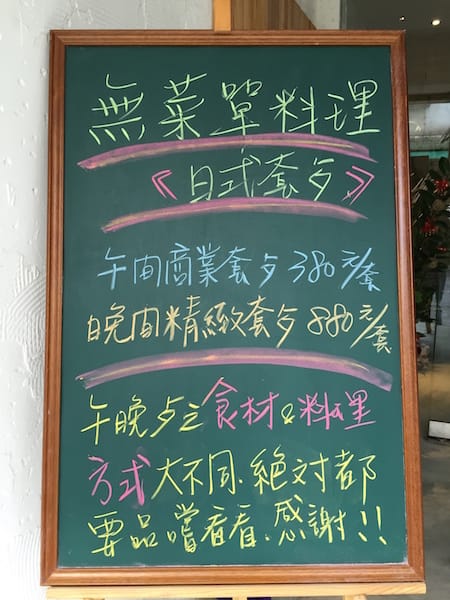 無菜單料理
《日式套歺》
午間商業套歺 380元/套
晚間精緻套歺 880元/套
午晚歺之食材&料理
方式大不同.絕対都
要品嚐看看.感謝!!